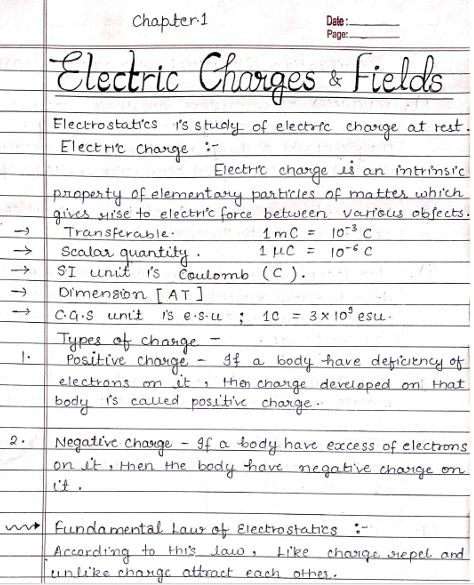 Chapter-1
Date:
Page:
Electric Charges & Fields
Electrostatics is study of electric charge at rest.
Electric charge :-
Electric charge is an intrinsic
property of elementary particles of matter which
gives rise to electric force between various objects.
→ Transferable. 1 mC = 10⁻³ C
→ Scalar quantity. 1 μC = 10⁻⁶ C
→ SI unit is Coulomb (C).
→ Dimension [AT]
→ C.G.S unit is e.s.u ; 1C = 3×10⁹ esu.
Types of charge -
1. Positive charge - If a body have deficiency of
electrons on it, then charge developed on that
body is called positive charge.
2. Negative charge - If a body have excess of electrons
on it, then the body have negative charge on
it.
Fundamental Law of Electrostatics :-
According to this law, Like charge repel and
unlike charge attract each other.